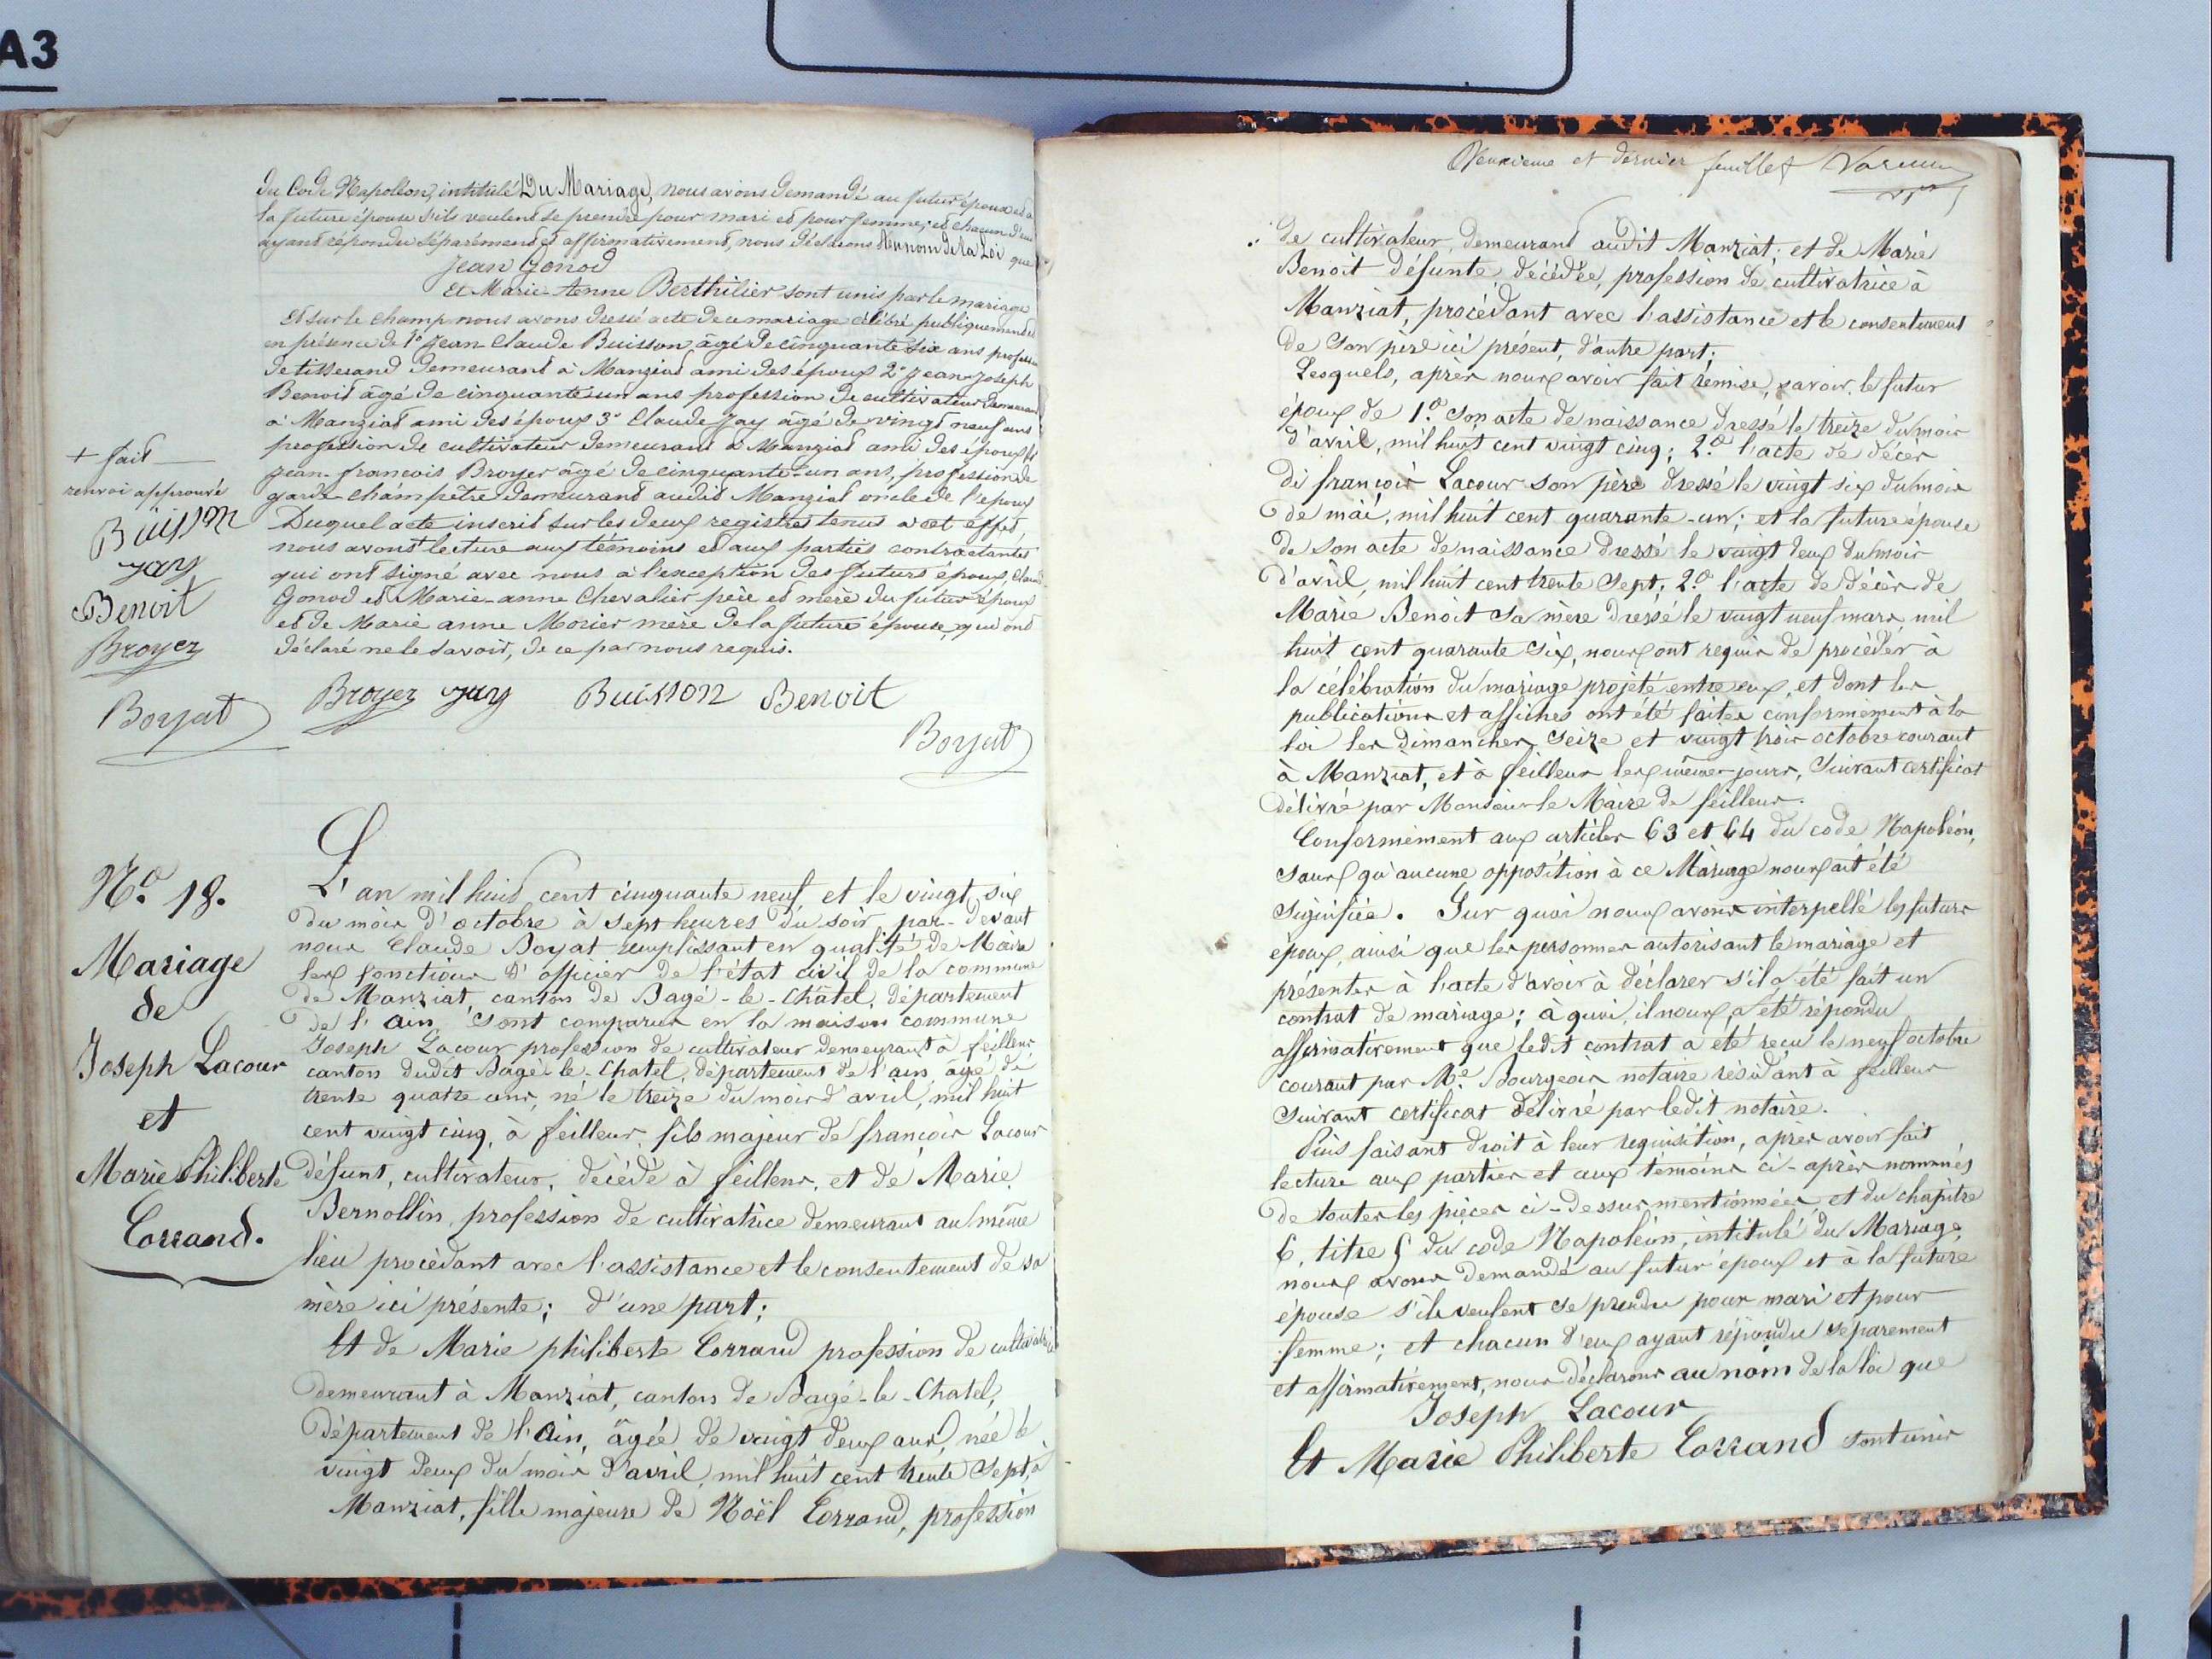 A3
du Code Napoléon, intitulé (Du Mariage), nous avons demandé au futur époux et à
la future épouse s'ils veulent se prendre pour mari et pour femme; et chacun d'eux
ayant répondu séparément et affirmativement, nous déclarons Au nom de la Loi que
Jean Gonod
Et Marie-Anne Berthilier sont unis par le mariage
Et sur le champ nous avons dressé acte de ce mariage célébré publiquement
en présence de 1° Jean-Claude Buisson âgé de cinquante six ans profession
de tisserand demeurant à Manziat ami des époux 2° Jean-Joseph
Benoit âgé de cinquante un ans profession de cultivateur demeurant
à Manziat ami des époux 3° Claude Jay âgé de vingt neuf ans
profession de cultivateur demeurant à Manziat ami des époux
Jean-francois Broyer âgé de cinquante-un ans, profession de
garde-champêtre demeurant audit Manziat oncle de l'époux
Duquel acte inscrit sur les deux registres tenus à cet effet,
nous avons + lecture aux témoins et aux parties contractantes
qui ont signé avec nous à l'exception des futurs époux, Claude
Gonod et Marie-anne Chevalier père et mère du futur époux
et de Marie anne Morier mère de la future épouse, qui ont
déclaré ne le savoir, de ce par nous requis.
Broyer Jay Buisson Benoit
Boyat
+ fait
renvoi approuvé
Buisson
Jay
Benoit
Broyer
Boyat
N° 18.
Mariage
de
Joseph Lacour
et
Marie Philiberte
Corrand.
L'an mil huit cent cinquante neuf, et le vingt six
du mois d'octobre à sept heures du soir, par-devant
nous Claude Boyat remplissant en qualité de Maire
les fonctions d'officier de l'état civil de la commune
de Manziat, canton de Bagé-le-Châtel, département
de l'ain, sont comparus en la maison commune
Joseph Lacour profession de cultivateur demeurant à feillens
canton dudit Bagé-le-Chatel, département de l'ain âgé de
trente quatre ans, né le treize du mois d'avril, mil huit
cent vingt cinq, à feillens, fils majeur de françois Lacour
défunt, cultivateur, décédé à feillens, et de Marie
Bernollin, profession de cultivatrice demeurant au même
lieu procédant avec l'assistance et le consentement de sa
mère ici présente; d'une part;
Et de Marie philiberte Corrand profession de cultivatrice
demeurant à Manziat, canton de Bagé-le-Chatel,
département de l'Ain, âgée de vingt deux ans, née le
vingt deux du mois d'avril, mil huit cent trente sept, à
Manziat, fille majeure de Noël Corrand, profession
Deuxième et dernier feuillet
de cultivateur, demeurant audit Manziat; et de Marie
Benoit défunte, décédée, profession de cultivatrice à
Manziat, procédant avec l'assistance et le consentement
de son père ici présent, d'autre part;
Lesquels, après nous avoir fait remise, savoir, le futur
époux de 1.° son acte de naissance dressé le treize du mois
d'avril, mil huit cent vingt cinq; 2.° l'acte de décès
de françois Lacour son père dressé le vingt six du mois
de mai, mil huit cent quarante-un; et la future épouse
de son acte de naissance dressé le vingt deux du mois
d'avril, mil huit cent trente sept; 2.° l'acte de décès de
Marie Benoit sa mère dressé le vingt neuf mars, mil
huit cent quarante six, nous ont requis de procéder à
la célébration du mariage projeté entre eux, et dont les
publications et affiches ont été faites conformément à la
loi les dimanches seize et vingt trois octobre courant
à Manziat, et à feillens les mêmes jours, suivant certificat
délivré par Monsieur le Maire de feillens.
Conformément aux articles 63 et 64 du code Napoléon,
sans qu'aucune opposition à ce Mariage nous ait été
signifiée. Sur quoi nous avons interpellé les futurs
époux, ainsi que les personnes autorisant le mariage et
présentes à l'acte d'avoir à déclarer s'il a été fait un
contrat de mariage; à quoi, il nous a été répondu
affirmativement que ledit contrat a été reçu le neuf octobre
courant par M.e Bourgeois notaire résidant à feillens
suivant certificat délivré par ledit notaire.
Puis faisant droit à leur requisition, après avoir fait
lecture aux parties et aux témoins ci-après nommés
de toutes les pièces ci-dessus mentionnées, et du chapitre
6, titre 5 du code Napoléon, intitulé du Mariage,
nous avons demandé au futur époux et à la future
épouse s'ils veulent se prendre pour mari et pour
femme; et chacun d'eux ayant répondu séparement
et affirmativement, nous déclarons au nom de la loi que
Joseph Lacour
Et Marie Philiberte Corrand sont unis